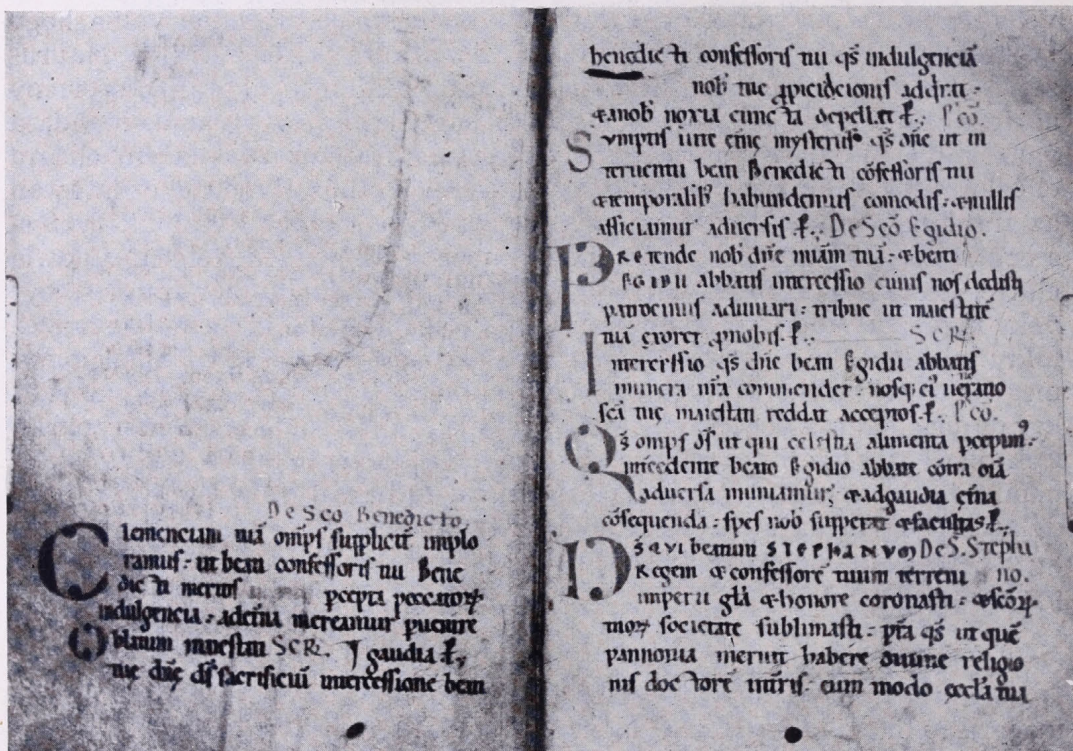 De Sco Benedicto.
Clementiam tuã omps suppliciter implo
ramus: ut beati confessoris tui Bene
dicti meritis pcepta peccatorꝝ
indulgencia: ad etña mereamur puenire
Oblatum maiestati SCR. gaudia ꝑ.
tue dñe dš sacrificiũ intercessione beati
benedicti confessoris tui qš indulgenciã
nob tue ꝓpiciacionis adqrat:
& a nob noxia cuncta depellat ꝑ. P̃ cõ.
Sumptis iute etñe mysteriis qš dñe ut in
teruentu beati Benedicti cõfessoris tui
& temporalib habundemus comodis: & nullis
afficiamur aduersis ꝑ. De Scõ Egidio.
PREtende nob dñe miãm tuã: & beati
EGIDII abbatis intercessio cuius nos dedisti
patrociniis adiuuari: tribue ut maiestatẽ
tuã exoret ꝓnobis. ꝑ. SCR.
Intercessio qš dñe beati Egidii abbatis
munera nrã commendet: nosq; ei ueñatio
sca tue maiestati reddat acceptos. ꝑ. P̃ cõ.
Qš omps dš ut qui celestia alimenta pcepim:
intcedente beato Egidio abbate cõtra oia
aduersa muniamur, & ad gaudia etña
cõsequenda: spes nob suppetat & facultas ꝑ.
Dš QVI beatum STEPHANVM De S. Stepha
REgem & confessorẽ tuum terreni no.
imperii glã & honore coronasti: & scõꝝ
tuoꝝ societate sublimasti: pta qš ut quẽ
pannonia meruit habere diuine religio
nis doctorẽ in tris: eum modo eccla tua